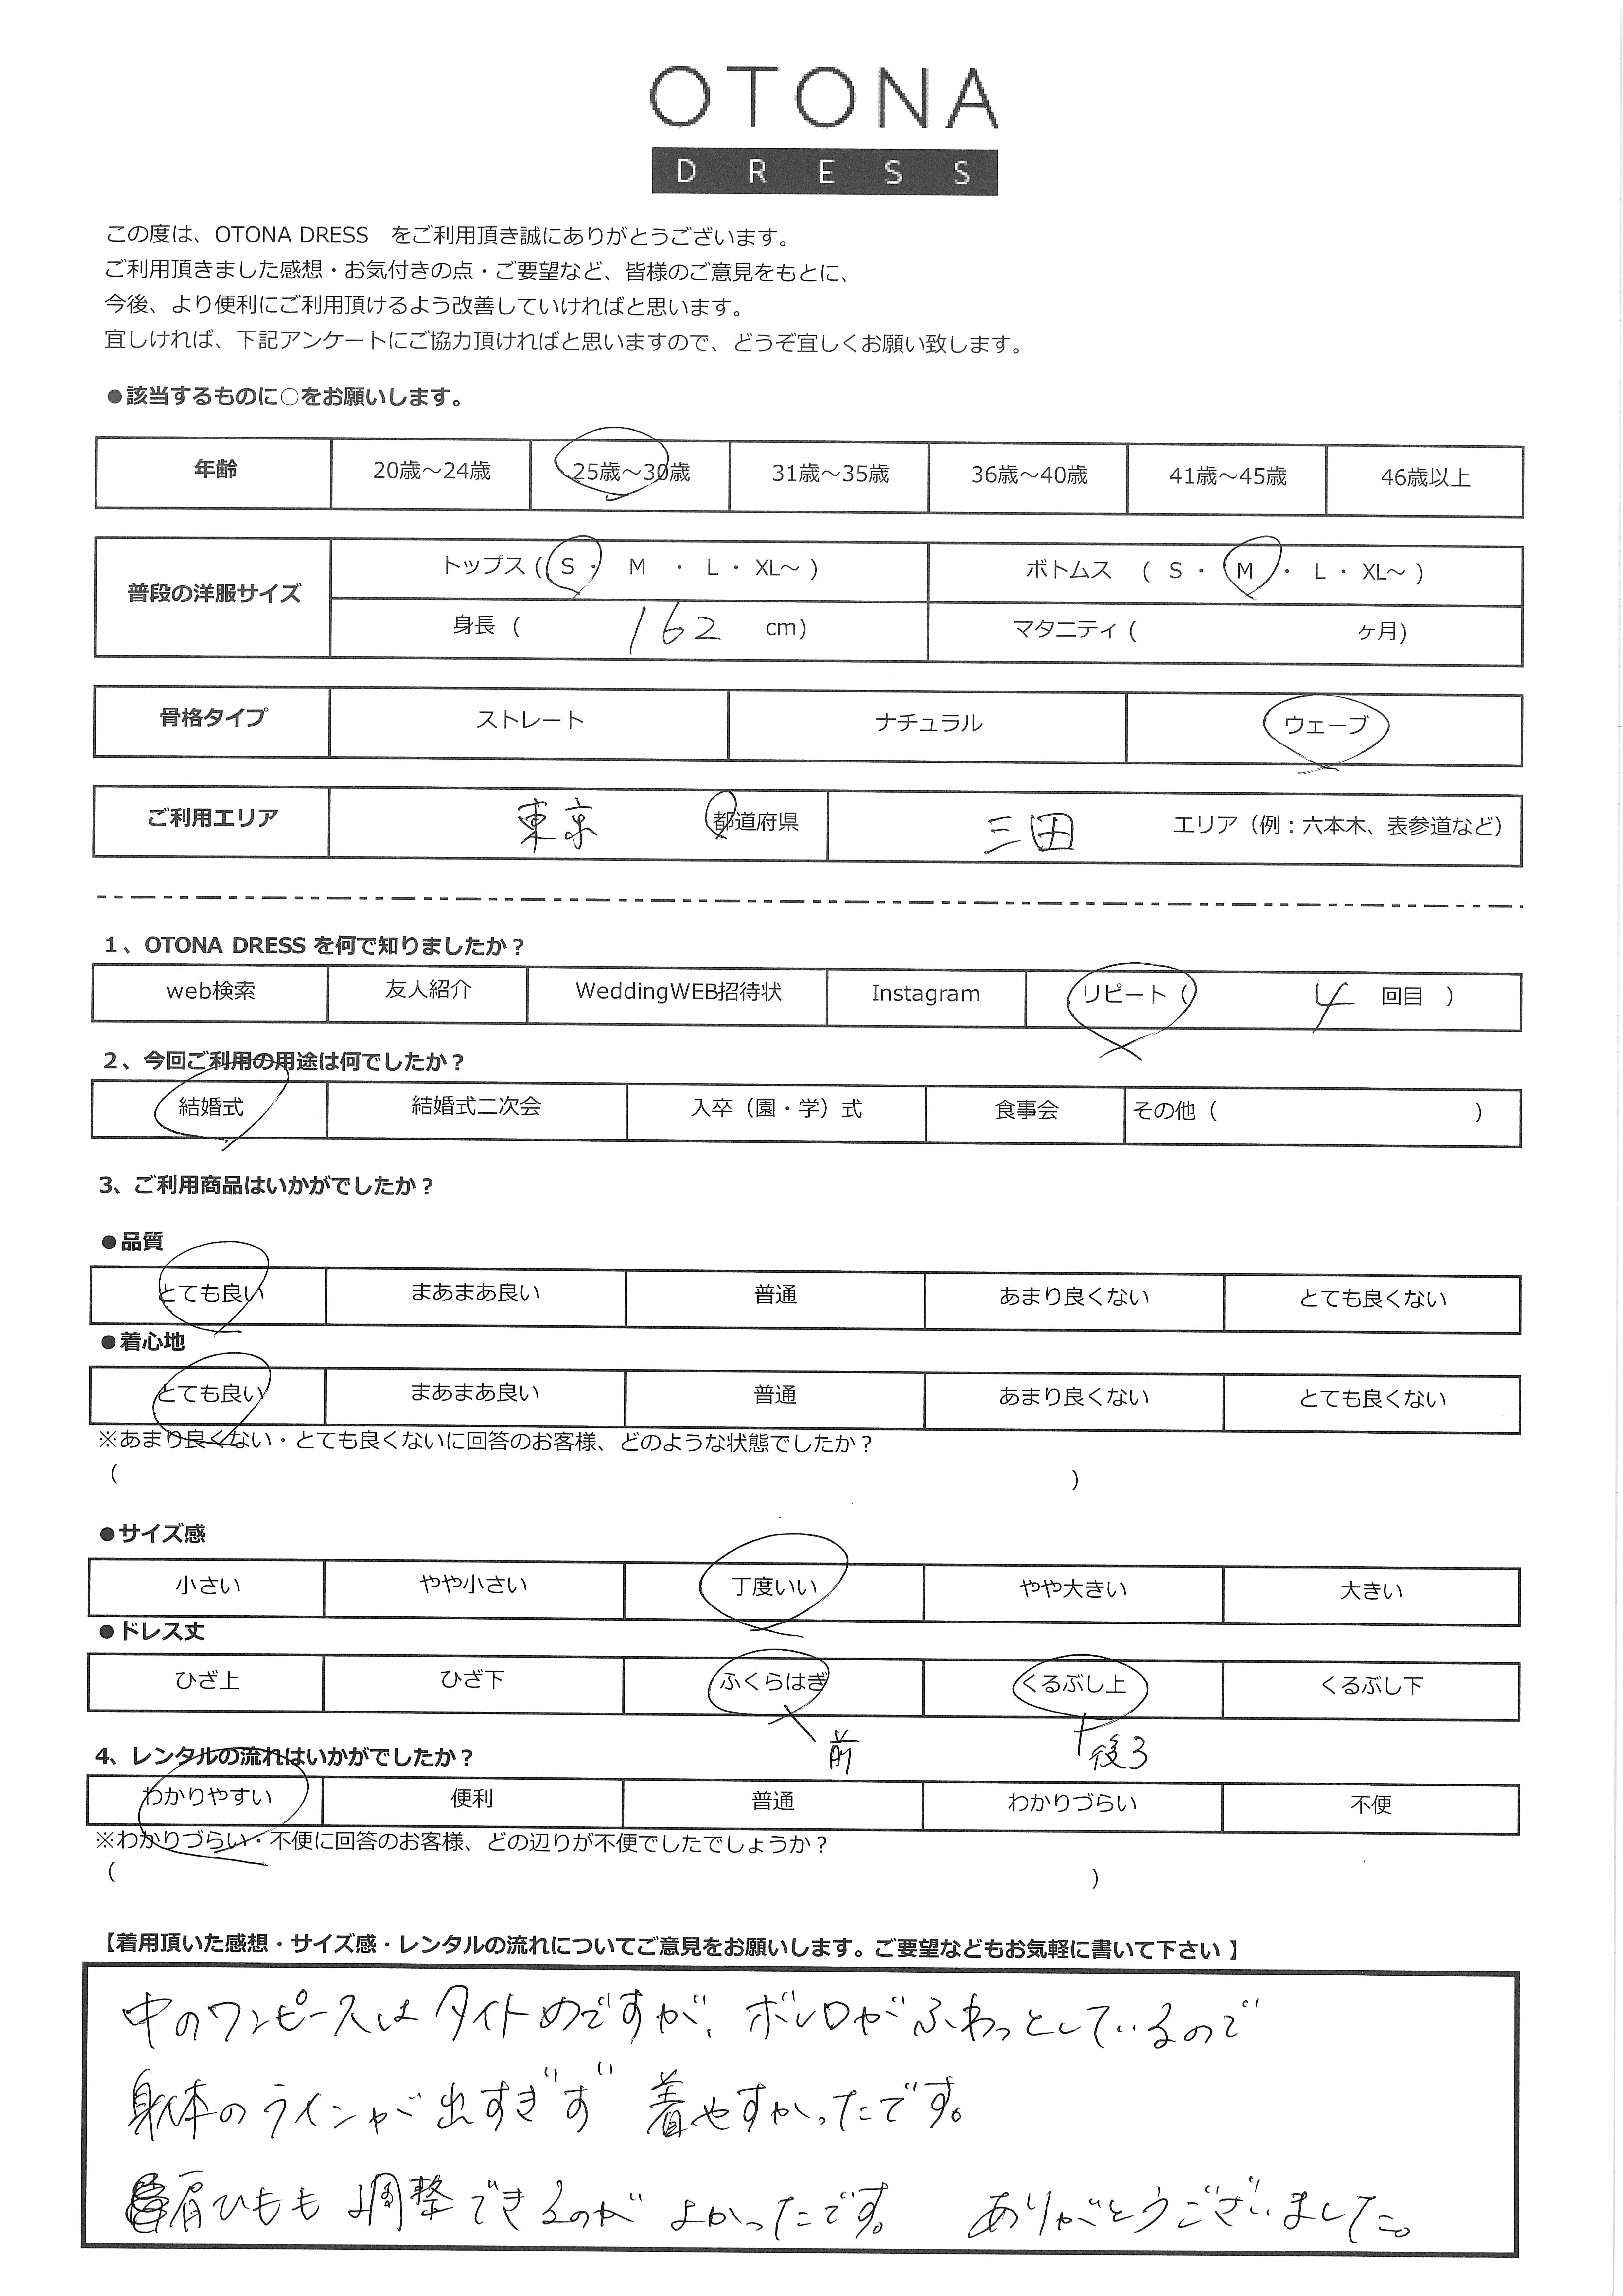 OTONA
DRESS
この度は、OTONA DRESS　をご利用頂き誠にありがとうございます。
ご利用頂きました感想・お気付きの点・ご要望など、皆様のご意見をもとに、
今後、より便利にご利用頂けるよう改善していければと思います。
宜しければ、下記アンケートにご協力頂ければと思いますので、どうぞ宜しくお願い致します。
●該当するものに○をお願いします。
年齢 20歳～24歳 25歳～30歳 31歳～35歳 36歳～40歳 41歳～45歳 46歳以上
普段の洋服サイズ トップス ( S ・ M ・ L ・ XL～ ) ボトムス ( S ・ M ・ L ・ XL～ )
身長 ( 162 cm) マタニティ ( ヶ月)
骨格タイプ ストレート ナチュラル ウェーブ
ご利用エリア 東京 都道府県 三田 エリア（例：六本木、表参道など）
1、OTONA DRESS を何で知りましたか？
web検索 友人紹介 WeddingWEB招待状 Instagram リピート ( 4 回目 )
2、今回ご利用の用途は何でしたか？
結婚式 結婚式二次会 入卒（園・学）式 食事会 その他 ( )
3、ご利用商品はいかがでしたか？
●品質
とても良い まあまあ良い 普通 あまり良くない とても良くない
●着心地
とても良い まあまあ良い 普通 あまり良くない とても良くない
※あまり良くない・とても良くないに回答のお客様、どのような状態でしたか？
( )
●サイズ感
小さい やや小さい 丁度いい やや大きい 大きい
●ドレス丈
ひざ上 ひざ下 ふくらはぎ くるぶし上 くるぶし下
前 後ろ
4、レンタルの流れはいかがでしたか？
わかりやすい 便利 普通 わかりづらい 不便
※わかりづらい・不便に回答のお客様、どの辺りが不便でしたでしょうか？
( )
【着用頂いた感想・サイズ感・レンタルの流れについてご意見をお願いします。ご要望などもお気軽に書いて下さい 】
中のワンピースはタイトめですが、ボレロがふわっとしているので
身体のラインが出すぎず 着やすかったです。
肩ひもも調整できるのが よかったです。 ありがとうございました。